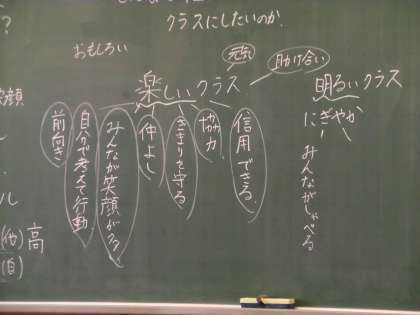 クラスにしたいのか.
おもしろい
元気
助け合い
楽しいクラス
明るいクラス
にぎやか
みんながしゃべる
信用できる
協力
きまりを守る
仲よし
みんなが笑顔が
自分で考えて行動
前向き
顔
ル
(他)高
(自)